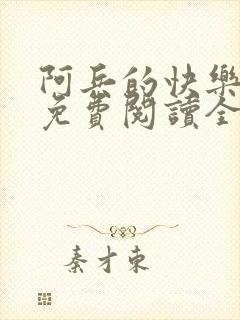 阿兵的快樂
免費閱讀全
秦才東